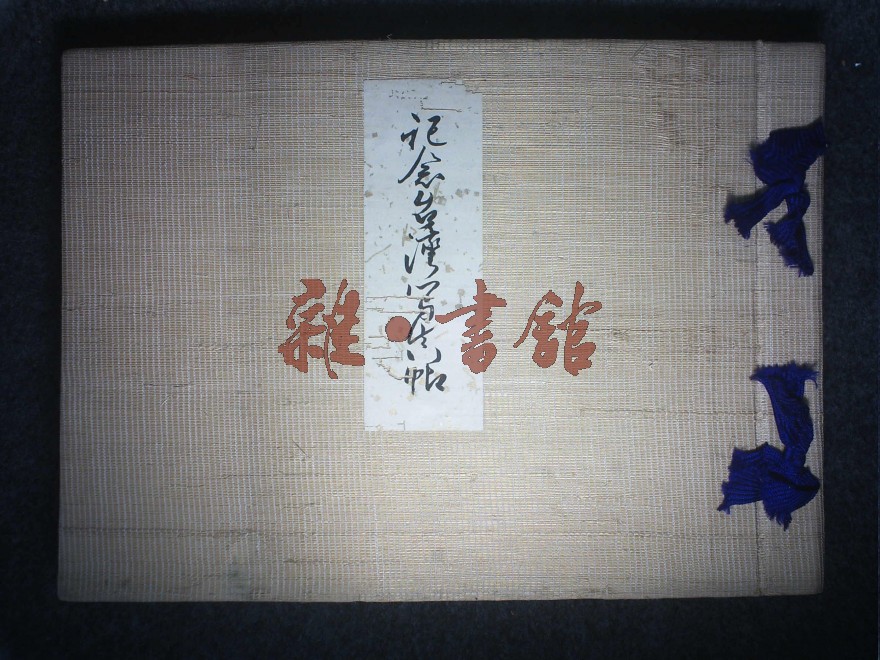 記念台湾写真帖
雜·書館